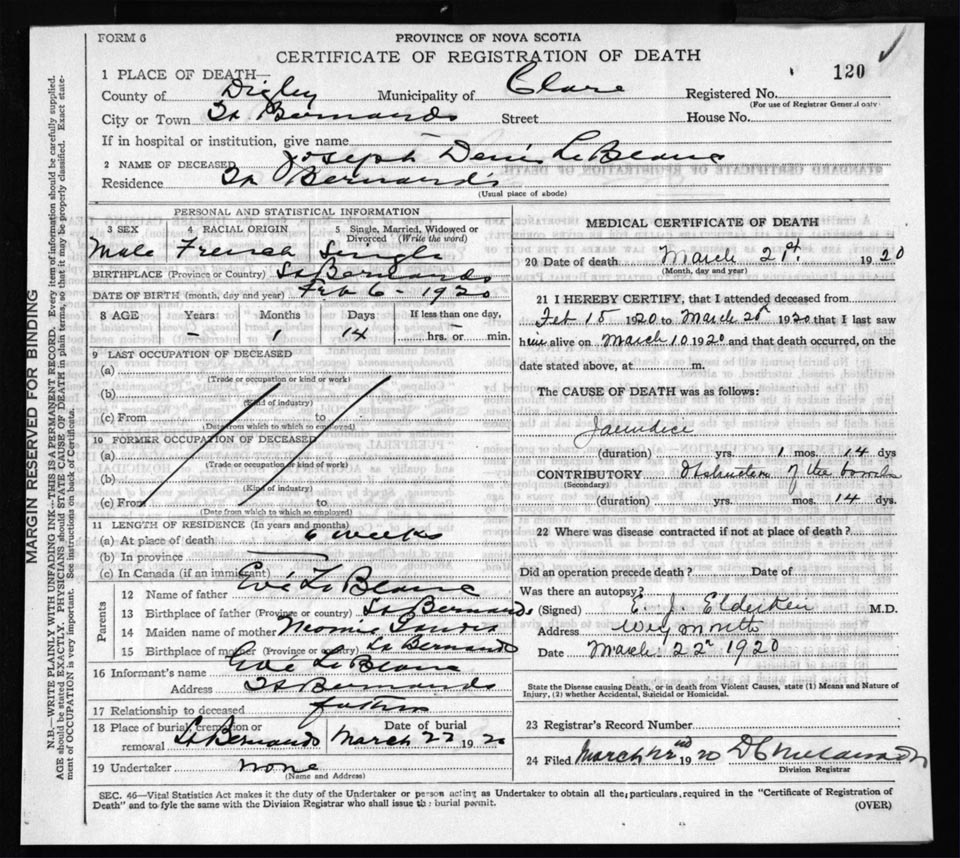 FORM 6
PROVINCE OF NOVA SCOTIA
CERTIFICATE OF REGISTRATION OF DEATH
120
1 PLACE OF DEATH—
County of Digby Municipality of Clare Registered No.
(For use of Registrar General only)
City or Town St Bernards Street House No.
If in hospital or institution, give name —
2 NAME OF DECEASED Joseph Denis Le Blanc
Residence St Bernards
(Usual place of abode)
PERSONAL AND STATISTICAL INFORMATION
3 SEX 4 RACIAL ORIGIN 5 Single, Married, Widowed or Divorced (Write the word)
Male French Single
BIRTHPLACE (Province or Country) St Bernards
DATE OF BIRTH (month, day and year) Feb 6 - 1920
8 AGE Years Months Days If less than one day,
1 14 hrs. or min.
9 LAST OCCUPATION OF DECEASED
(a)
(Trade or occupation or kind or work)
(b)
(Kind of industry)
(c) From to
(Date from which to which so employed)
10 FORMER OCCUPATION OF DECEASED
(a)
(Trade or occupation or kind of work)
(b)
(Kind of industry)
(c) From to
(Date from which to which so employed)
11 LENGTH OF RESIDENCE (In years and months)
(a) At place of death 6 weeks
(b) In province
(c) In Canada (if an immigrant)
Parents
12 Name of father Le Blanc
13 Birthplace of father (Province or country) St Bernards
14 Maiden name of mother
15 Birthplace of mother (Province or country) St Bernards
16 Informant's name Le Blanc
Address St Bernards
17 Relationship to deceased father
18 Place of burial, cremation or removal St Bernards Date of burial March 22 1920
19 Undertaker none
(Name and Address)
MEDICAL CERTIFICATE OF DEATH
20 Date of death March 21st. 1920
(Month, day and year)
21 I HEREBY CERTIFY, that I attended deceased from
Feb 15 1920 to March 1920 that I last saw
him alive on March 10 1920 and that death occurred, on the
date stated above, at m.
The CAUSE OF DEATH was as follows:
Jaundice
(duration) yrs. 1 mos. 14 dys
CONTRIBUTORY Obstruction of the bowels
(Secondary)
(duration) yrs. mos. 14 dys.
22 Where was disease contracted if not at place of death?
Did an operation precede death? Date of
Was there an autopsy?
(Signed) E. J. Elderkin M.D.
Address Weymouth
Date March 22nd 1920
State the Disease causing Death, or in death from Violent Causes, state (1) Means and Nature of
Injury, (2) whether Accidental, Suicidal or Homicidal.
23 Registrar's Record Number
24 Filed March 22nd 1920
Division Registrar
SEC. 46—Vital Statistics Act makes it the duty of the Undertaker or person acting as Undertaker to obtain all the particulars required in the "Certificate of Registration of
Death" and to fyle the same with the Division Registrar who shall issue the burial permit. (OVER)
MARGIN RESERVED FOR BINDING
N.B.—WRITE PLAINLY WITH UNFADING INK—THIS IS A PERMANENT RECORD. Every item of information should be carefully supplied.
AGE should be stated EXACTLY. PHYSICIANS should STATE CAUSE OF DEATH in plain terms, so that it may be properly classified. Exact state-
ment of OCCUPATION is very important. See instructions on back of Certificate.